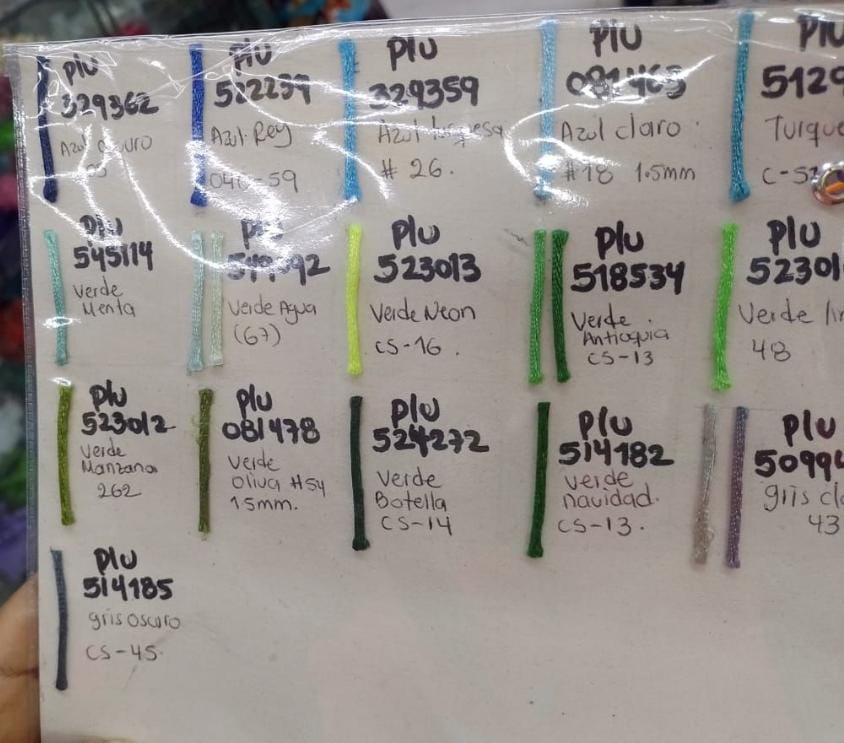 Plu
329362
Azul
Plu
512239
Azul Rey
59
Plu
329359
Azul
# 26.
Plu
Azul claro
#18 1.5mm
Plu
5129
Turque
C-52
Plu
545114
Verde
Menta
Plu
Verde Agua
(67)
Plu
523013
Verde Neon
CS-16.
Plu
518534
Verde
Antioquia
CS-13
Plu
52301
Verde
48
Plu
523012
Verde
Manzana
262
Plu
081478
Verde
Oliva #54
1.5mm.
Plu
524272
Verde
Botella
CS-14
Plu
514182
Verde
navidad.
CS-13.
Plu
5099
gris cla
43
Plu
514185
gris oscuro
CS-45.